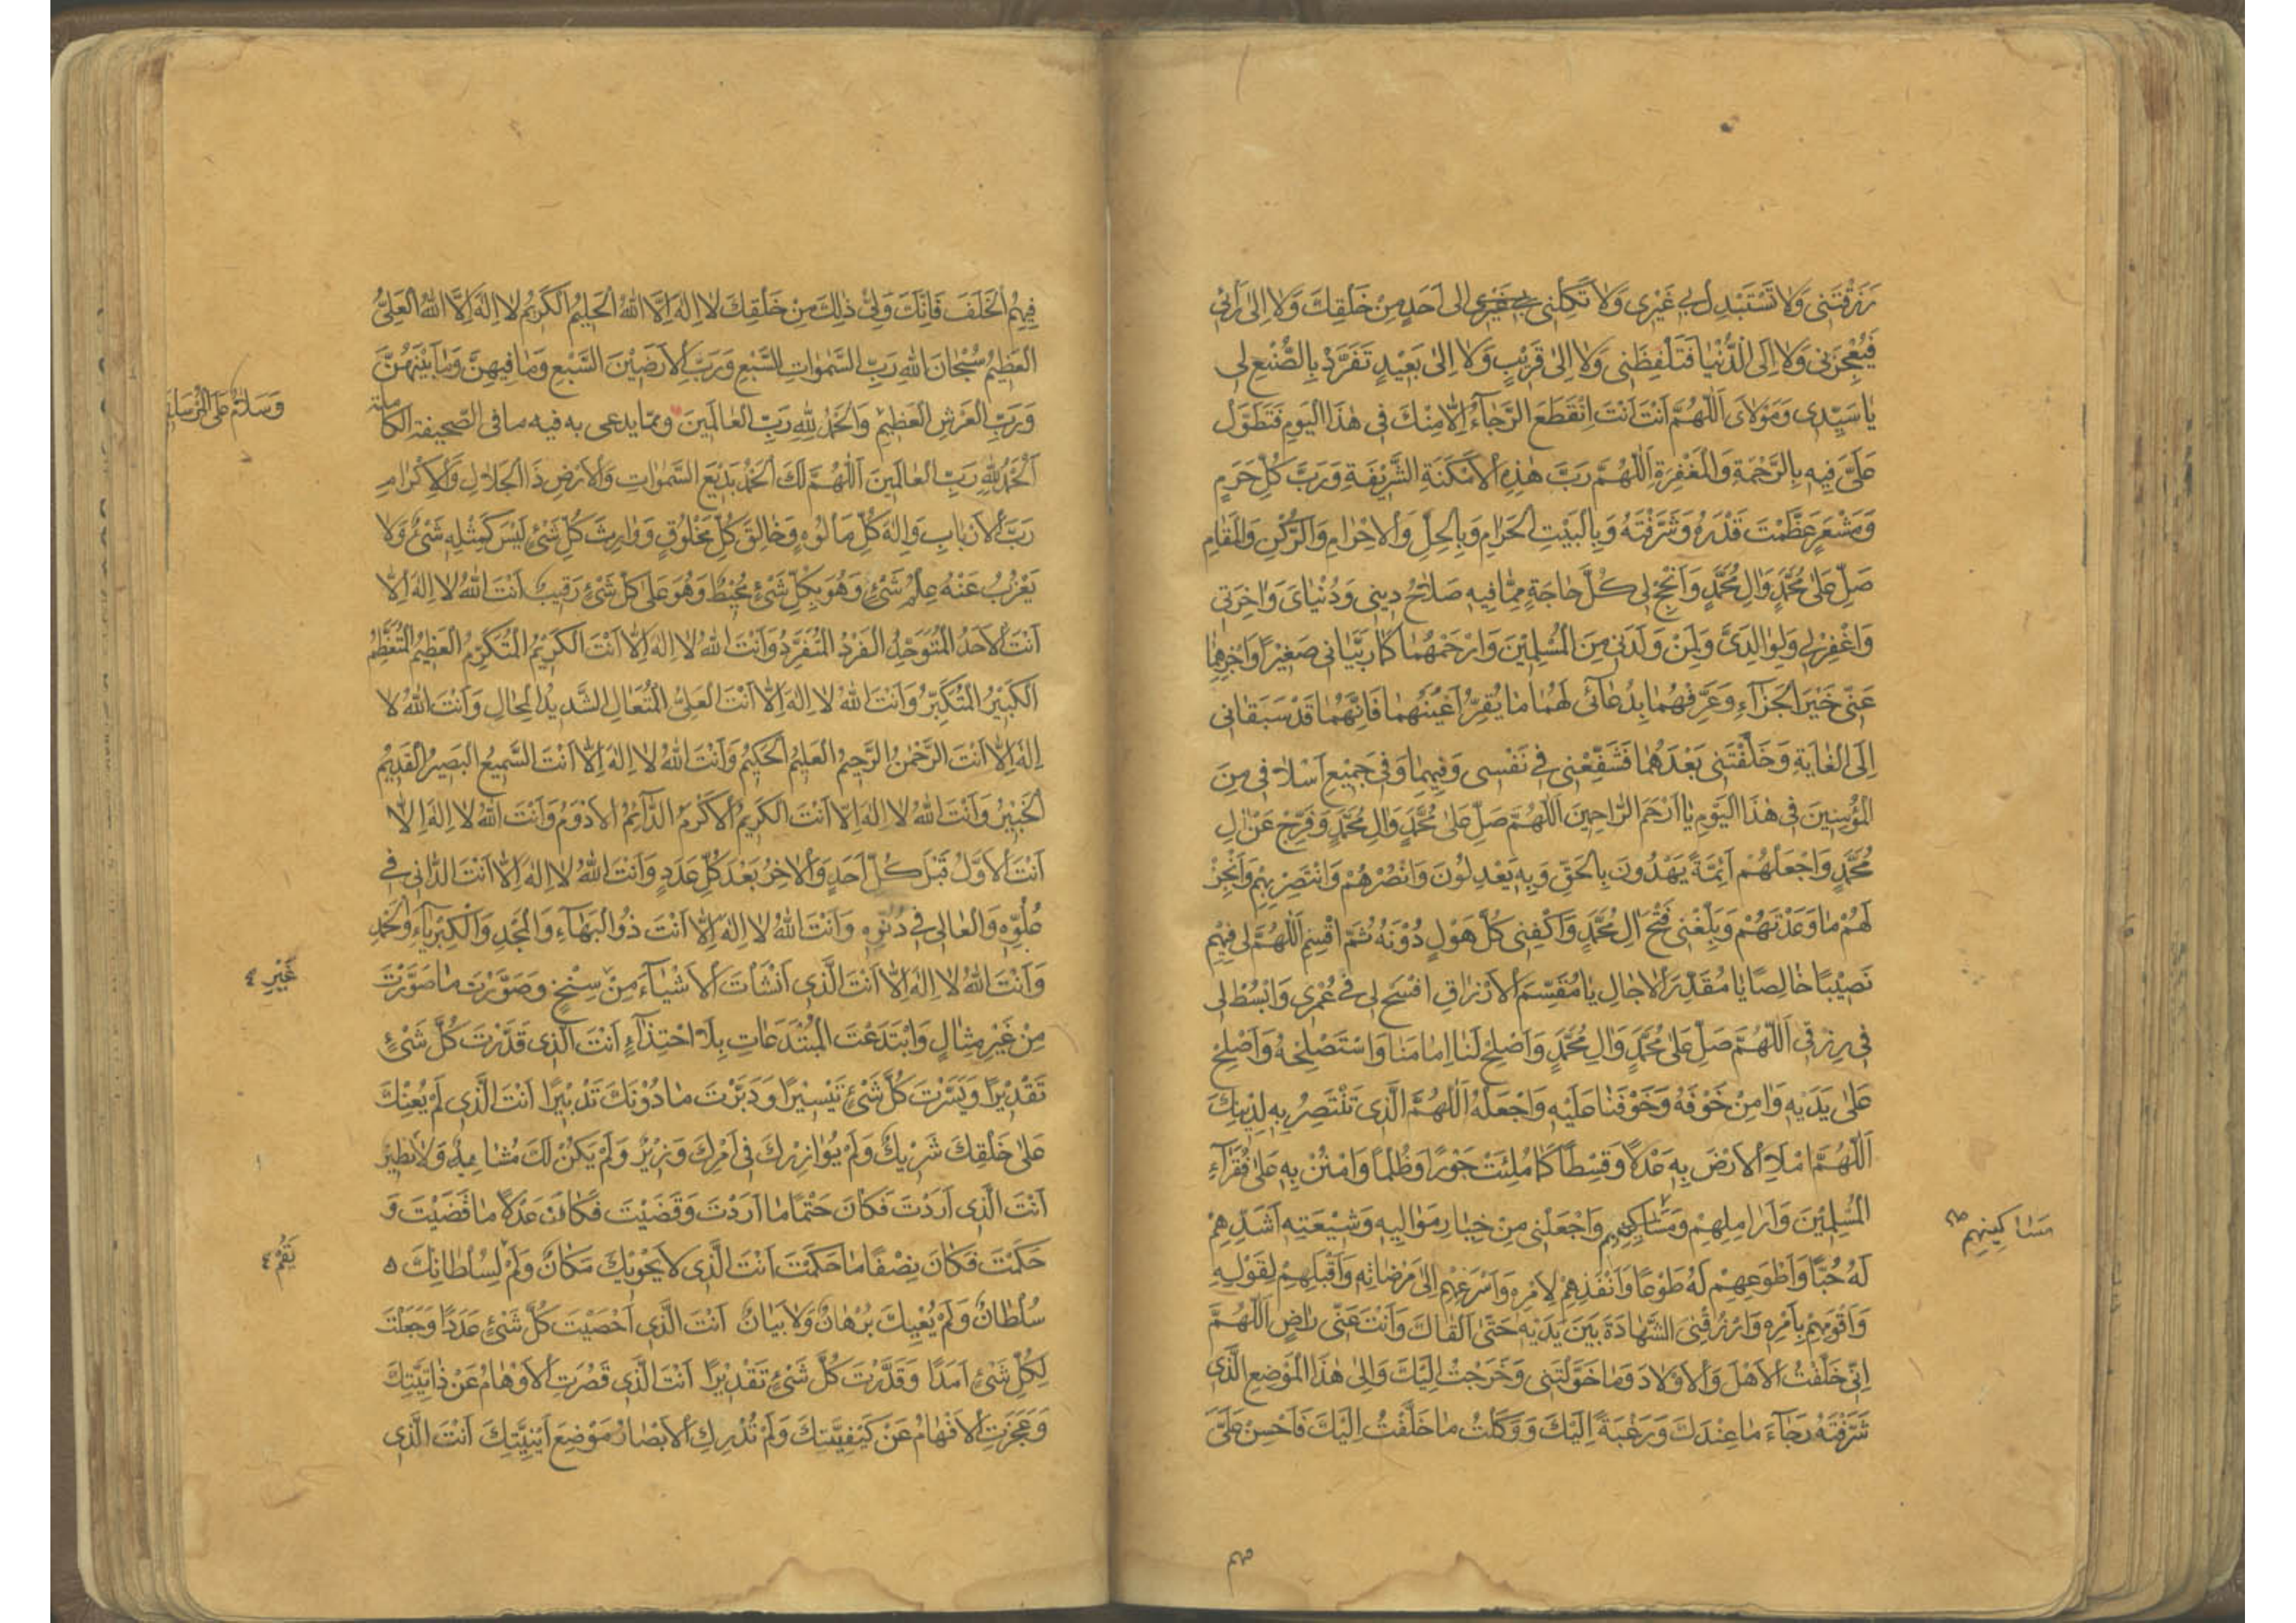 رَزَقْتَنی وَلا تَسْتَبْدِل بی غَیْری وَلا تَکِلْنی بی غیری الی اَحَدٍ مِنْ خَلْقِکَ وَلا اِلی رَأیی
فَیُعْجِزَنی وَلا اِلَی الدُّنْیا فَتَلْفِظَنی وَلا اِلی قَریبٍ وَلا اِلی بَعیدٍ تَفَرَّدْ بِالصُّنْعِ لی
یا سَیِّدی وَمَوْلایَ اَللّهُمَّ اَنْتَ اَنْتَ اِنْقَطَعَ الرَّجاءُ اِلّا مِنْکَ فی هٰذَا الْیَومِ فَتَطَوَّل
عَلَیَّ فیهِ بِالرَّحْمَةِ وَالْمَغْفِرَةِ اَللّهُمَّ رَبَّ هٰذِهِ الْاَمْکِنَةِ الشَّریفَةِ وَرَبَّ کُلِّ حَرَمٍ
وَمَشْعَرٍ عَظَّمْتَ قَدْرَهُ وَشَرَّفْتَهُ وَبِالْبَیْتِ الْحَرامِ وَبِالْحِلِّ وَالْاِحْرامِ وَالرُّکْنِ وَالْمَقامِ
صَلِّ عَلی مُحَمَّدٍ وَالِ مُحَمَّدٍ وَاَنْجِحْ لی کُلَّ حاجَةٍ مِمّا فیهِ صَلاحُ دینی وَدُنْیایَ وَاخِرَتی
وَاغْفِرْ لی وَلِوالِدَیَّ وَلِمَنْ وَلَدَنی مِنَ الْمُسْلِمینَ وَارْحَمْهُما کَما رَبَّیانی صَغیراً وَاجْزِهِما
عَنّی خَیْرَ الْجَزاءِ وَعَرِّفْهُما بِدُعائی لَهُما ما یُقِرُّ اَعْیُنَهُما فَاِنَّهُما قَدْ سَبَقانی
اِلَی الْغایَةِ وَخَلَّفْتَنی بَعْدَهُما فَشَفِّعْنی فی نَفْسی وَفیهِما وَفی جَمیعِ اَسْلافی مِنَ
الْمُؤْمِنینَ فی هٰذَا الْیَوْمِ یا اَرْحَمَ الرّاحِمینَ اَللّهُمَّ صَلِّ عَلی مُحَمَّدٍ وَالِ مُحَمَّدٍ وَفَرِّجْ عَنْ الِ
مُحَمَّدٍ وَاجْعَلْهُمْ اَئِمَّةً یَهْدُونَ بِالْحَقِّ وَبِهِ یَعْدِلُونَ وَانْصُرْهُمْ وَانْتَصِرْ بِهِمْ وَاَنْجِزْ
لَهُمْ ما وَعَدْتَهُمْ وَبَلِّغْنی فَتْحَ الِ مُحَمَّدٍ وَاکْفِنی کُلَّ هَوْلٍ دُوْنَهُ ثُمَّ اقْسِمِ اَللّهُمَّ لی فیهِمْ
نَصیْبًا خالِصًا یا مُقَدِّرَ الْاجالِ یا مُقَسِّمَ الْاَرْزاقِ افْسَحْ لی فی عُمْری وَابْسُطْ لی
فی رِزْقی اَللّهُمَّ صَلِّ عَلی مُحَمَّدٍ وَالِ مُحَمَّدٍ وَاَصْلِحْ لَنا اِمامَنا وَاسْتَصْلِحْهُ وَاَصْلِحْ
عَلی یَدَیْهِ وَامِنْ خَوْفَهُ وَخَوْفَنا عَلَیْهِ وَاجْعَلْهُ اَللّهُمَّ الَّذی تَنْتَصِرُ بِهِ لِدینِکَ
اَللّهُمَّ امْلَاِ الْاَرْضَ بِهِ عَدْلًا وَقِسْطًا کَما مُلِئَتْ جَوْرًا وَظُلْمًا وَامْنُنْ بِهِ عَلی فُقَراءِ
الْمُسْلِمینَ وَاَرامِلِهِمْ وَمَساکینِهِم وَاجْعَلْنی مِنْ خِیارِ مَوالیهِ وَشیْعَتِهِ اَشَدِّهِمْ
مَساکینِهِمْ
لَهُ حُبًّا وَاَطْوَعِهِمْ لَهُ طَوْعًا وَاَنْفَذِهِمْ لِاَمْرِهِ وَاَسْرَعِهِمْ اِلی مَرْضاتِهِ وَاَقْبَلِهِمْ لِقَوْلِهِ
وَاَقْوَمِهِمْ بِاَمْرِهِ وَارْزُقْنِی الشَّهادَةَ بَیْنَ یَدَیْهِ حَتّی اَلْقاکَ وَاَنْتَ عَنّی راضٍ اَللّهُمَّ
اِنّی خَلَّفْتُ الْاَهْلَ وَالْاَوْلادَ وَما خَوَّلْتَنی وَخَرَجْتُ اِلَیْکَ وَاِلی هٰذَا الْمَوْضِعِ الَّذی
شَرَّفْتَهُ رَجاءَ ما عِنْدَکَ وَرَغْبَةً اِلَیْکَ وَوَکَلْتُ ما خَلَّفْتُ اِلَیْکَ فَاَحْسِنْ عَلَیَّ
فیهم
فیهِمُ الْخَلَفَ فَاِنَّکَ وَلِیُّ ذٰلِکَ مِنْ خَلْقِکَ لا اِلٰهَ اِلَّا اللهُ الْحَلیمُ الْکَریمُ لا اِلٰهَ اِلَّا اللهُ الْعَلِیُّ
الْعَظیمُ سُبْحانَ اللهِ رَبِّ السَّمٰواتِ السَّبْعِ وَرَبِّ الْاَرَضیْنَ السَّبْعِ وَما فیهِنَّ وَما بَیْنَهُنَّ
وَرَبِّ الْعَرْشِ الْعَظیمِ وَالْحَمْدُ لِلّهِ رَبِّ الْعالَمینَ وممّا یدعی به فیه ما فی الصّحیفة الکاملة
وَسَلامٌ عَلَی الْمُرْسَلینَ
اَلْحَمْدُ لِلّهِ رَبِّ الْعالَمینَ اَللّهُمَّ لَکَ الْحَمْدُ بَدیعَ السَّمٰواتِ وَالْاَرْضِ ذَا الْجَلالِ وَالْاِکْرامِ
رَبَّ الْاَرْبابِ وَاِلٰهَ کُلِّ مَأْلُوْهٍ وَخالِقَ کُلِّ مَخْلُوقٍ وَوارِثَ کُلِّ شَیْءٍ لَیْسَ کَمِثْلِهِ شَیْءٌ وَلا
یَعْزُبُ عَنْهُ عِلْمُ شَیْءٍ وَهُوَ بِکُلِّ شَیْءٍ مُحیطٌ وَهُوَ عَلی کُلِّ شَیْءٍ رَقیبٌ اَنْتَ اللهُ لا اِلٰهَ اِلّا
اَنْتَ الْاَحَدُ الْمُتَوَحِّدُ الْفَرْدُ الْمُتَفَرِّدُ وَاَنْتَ اللهُ لا اِلٰهَ اِلّا اَنْتَ الْکَریْمُ الْمُتَکَرِّمُ الْعَظیمُ الْمُتَعَظِّمُ
الْکَبیْرُ الْمُتَکَبِّرُ وَاَنْتَ اللهُ لا اِلٰهَ اِلّا اَنْتَ الْعَلِیُّ الْمُتَعالِ الشَّدیدُ الْمِحالِ وَاَنْتَ اللهُ لا
اِلٰهَ اِلّا اَنْتَ الرَّحْمٰنُ الرَّحیمُ الْعَلیمُ الْحَکیمُ وَاَنْتَ اللهُ لا اِلٰهَ اِلّا اَنْتَ السَّمیعُ الْبَصیرُ الْقَدیمُ
الْخَبیْرُ وَاَنْتَ اللهُ لا اِلٰهَ اِلّا اَنْتَ الْکَریمُ الْاَکْرَمُ الدّائِمُ الْاَدْوَمُ وَاَنْتَ اللهُ لا اِلٰهَ اِلّا
اَنْتَ الْاَوَّلُ قَبْلَ کُلِّ اَحَدٍ وَالْاخِرُ بَعْدَ کُلِّ عَدَدٍ وَاَنْتَ اللهُ لا اِلٰهَ اِلّا اَنْتَ الدّانی فی
عُلُوِّهِ وَالْعالی فی دُنُوِّهِ وَاَنْتَ اللهُ لا اِلٰهَ اِلّا اَنْتَ ذُو الْبَهاءِ وَالْمَجْدِ وَالْکِبْرِیاءِ وَالْحَمْدِ
وَاَنْتَ اللهُ لا اِلٰهَ اِلّا اَنْتَ الَّذی اَنْشَأْتَ الْاَشْیاءَ مِنْ سِنْخٍ وَصَوَّرْتَ ما صَوَّرْتَ
غَیْرِ
مِنْ غَیْرِ مِثالٍ وَابْتَدَعْتَ الْمُبْتَدَعاتِ بِلَا احْتِذاءٍ اَنْتَ الَّذی قَدَّرْتَ کُلَّ شَیْءٍ
تَقْدیْرًا وَیَسَّرْتَ کُلَّ شَیْءٍ تَیْسیرًا وَدَبَّرْتَ ما دُوْنَکَ تَدْبیْرًا اَنْتَ الَّذی لَمْ یُعِنْکَ
عَلی خَلْقِکَ شَریْکٌ وَلَمْ یُوازِرْکَ فی اَمْرِکَ وَزیْرٌ وَلَمْ یَکُنْ لَکَ مُشابِهٌ وَلا نَظیرٌ
اَنْتَ الَّذی اَرَدْتَ فَکانَ حَتْمًا ما اَرَدْتَ وَقَضَیْتَ فَکانَ عَدْلًا ما قَضَیْتَ وَ
حَکَمْتَ فَکانَ نِصْفًا ما حَکَمْتَ اَنْتَ الَّذی لا یَحْویْکَ مَکانٌ وَلَمْ لِسُلْطانِکَ
یَقُمْ
سُلْطانٌ وَلَمْ یُعْیِکَ بُرْهانٌ وَلا بَیانٌ اَنْتَ الَّذی اَحْصَیْتَ کُلَّ شَیْءٍ عَدَدًا وَجَعَلْتَ
لِکُلِّ شَیْءٍ اَمَدًا وَقَدَّرْتَ کُلَّ شَیْءٍ تَقْدیْرًا اَنْتَ الَّذی قَصُرَتِ الْاَوْهامُ عَنْ ذاتِیَّتِکَ
وَعَجَزَتِ الْاَفْهامُ عَنْ کَیْفِیَّتِکَ وَلَمْ تُدْرِکِ الْاَبْصارُ مَوْضِعَ اَیْنِیَّتِکَ اَنْتَ الَّذی